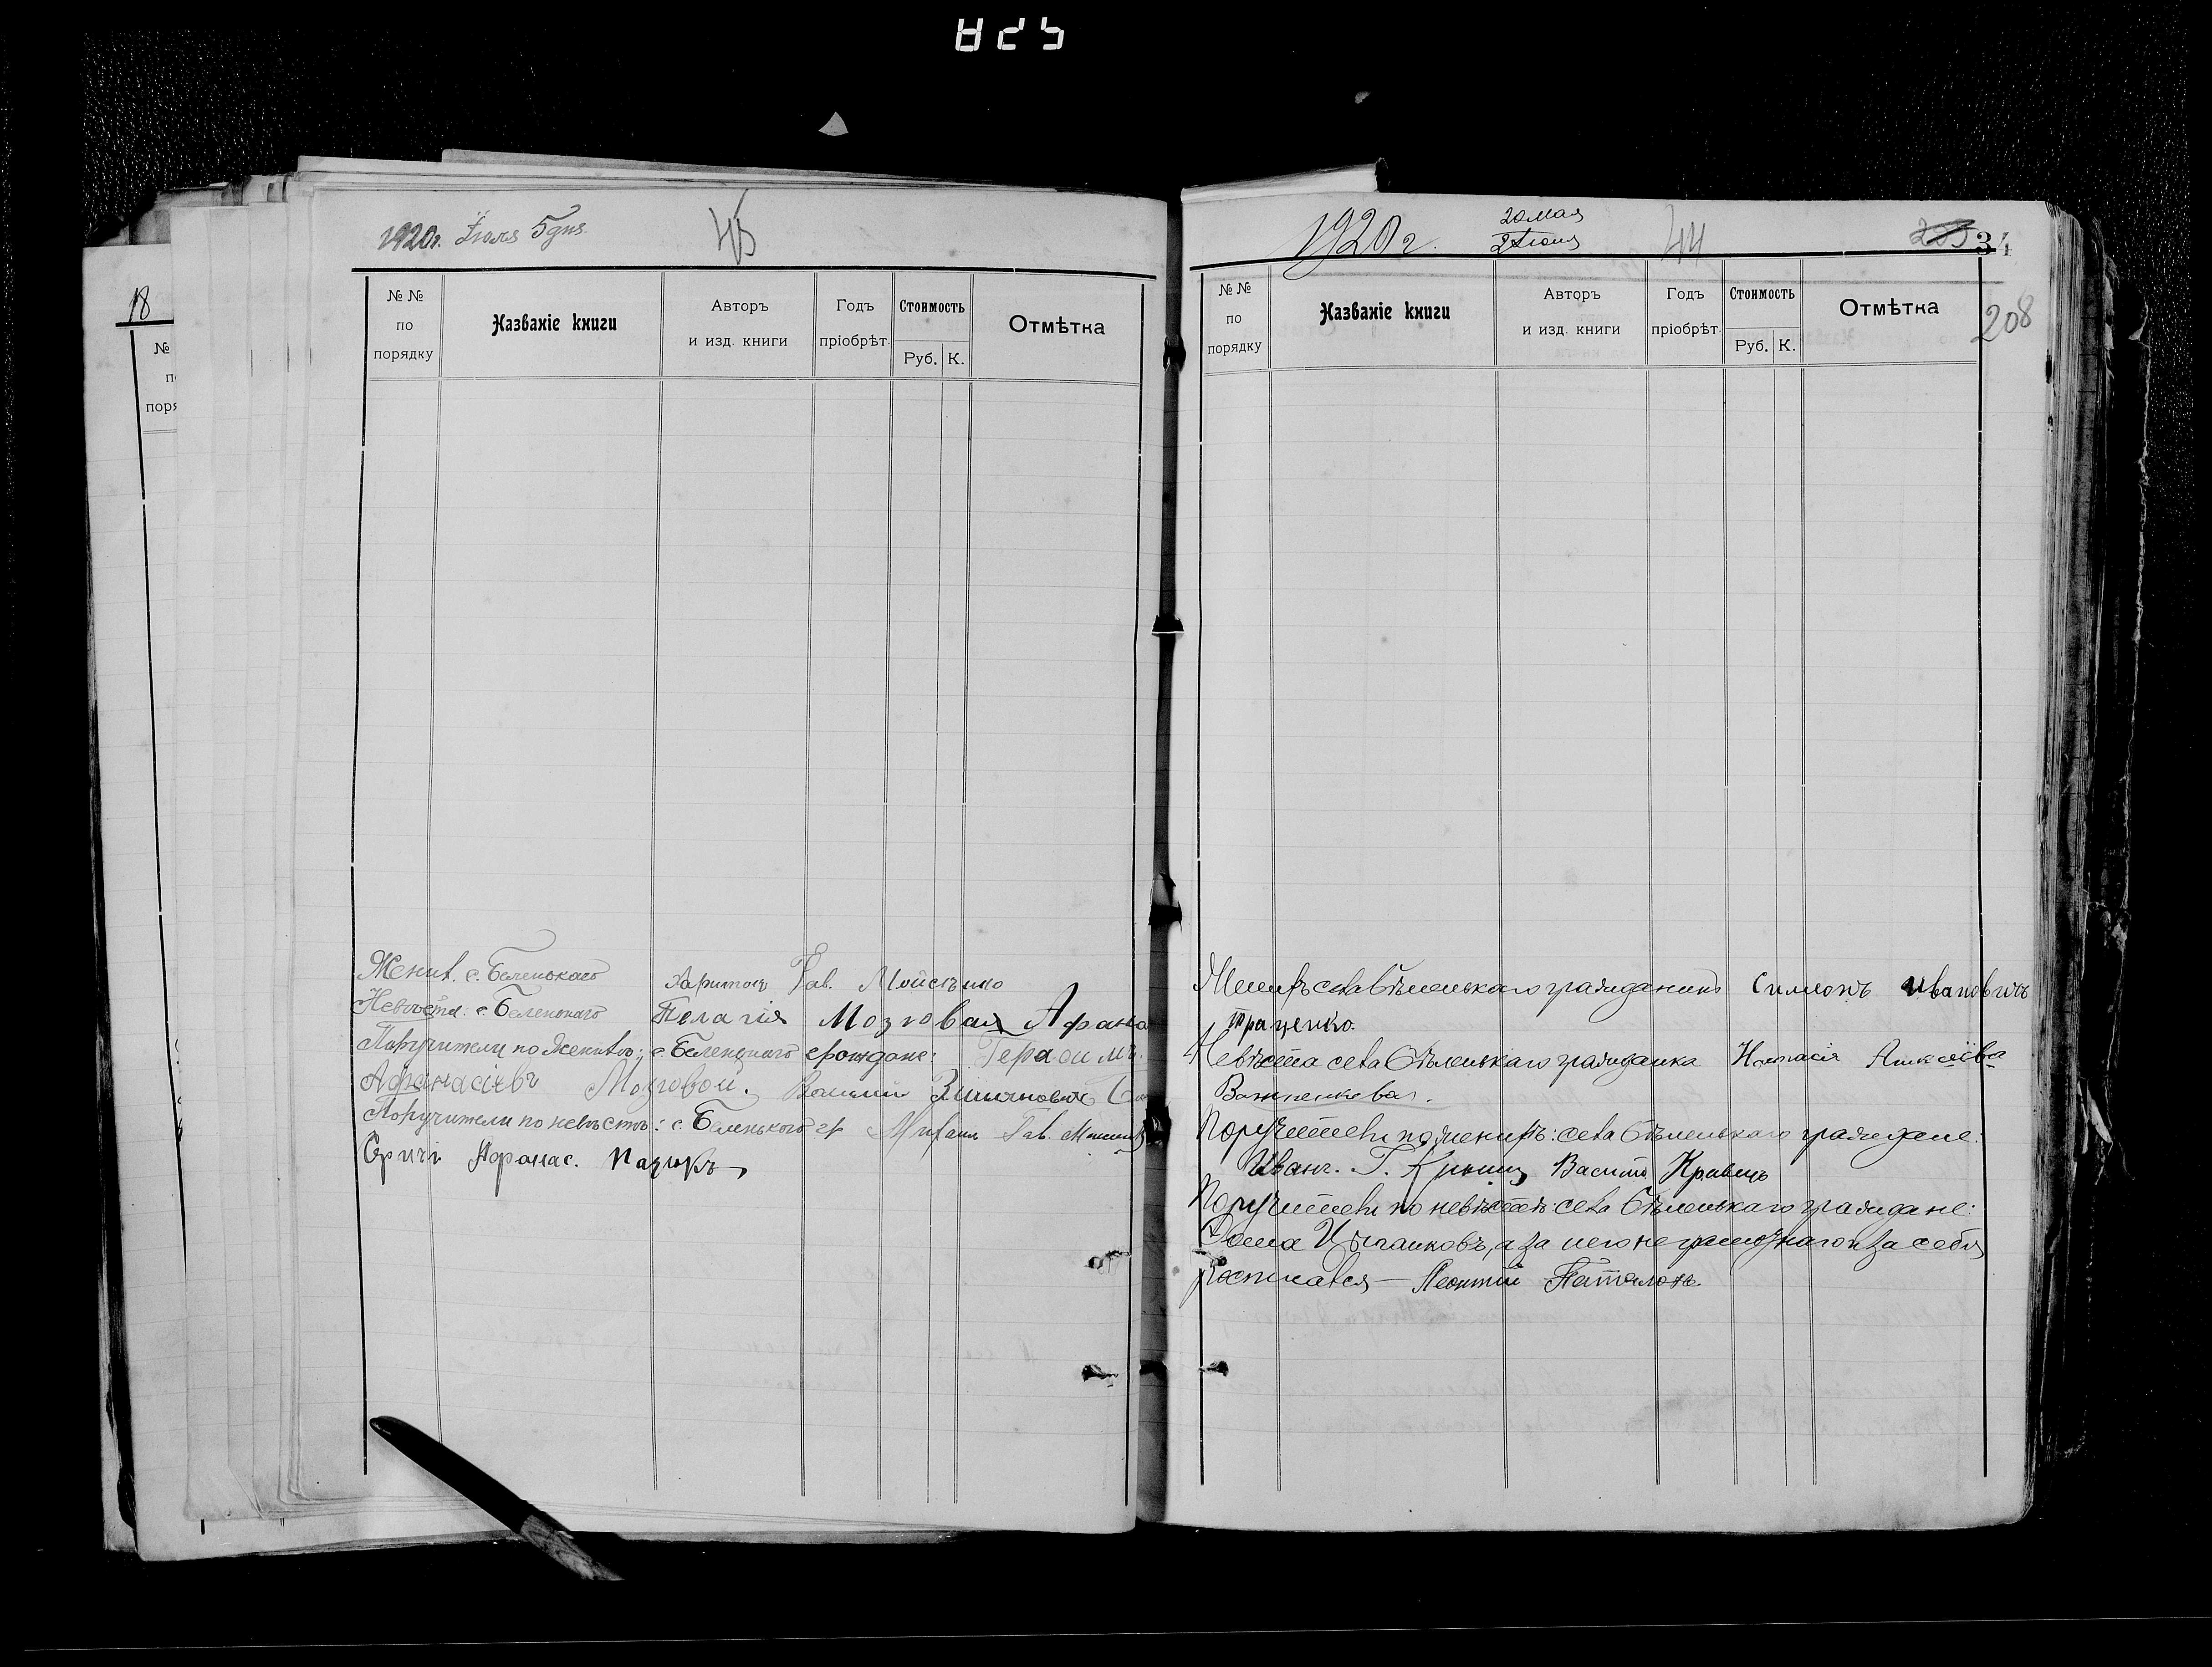 1920г. Іюля 5 дня. 45
№ №
по
порядку
Названіе книги
Авторъ
и изд. книги
Годъ
пріобрѣт.
Стоимость
Руб. К.
Отмѣтка
Жених. с. Беленькаго Харитон Гав. Мойсѣенко
Невѣста: с. Беленькаго Пелагія Мозговая Афана
Поручители по женихъ: с. Беленькаго граждане: Герасимъ
Афанасіевъ Мозговой.
Поручители по невѣстѣ: с. Беленького гр Михаил Гав.
Афанас. Пазюкъ
18
№
п
поря
1920 г. 20 мая
2 Іюня 44 34
208
№ №
по
порядку
Названіе книги
Авторъ
и изд. книги
Годъ
пріобрѣт.
Стоимость
Руб. К.
Отмѣтка
Женихъ села Бѣленькаго гражданинъ Симонъ Ивановичъ
Проценко.
Невѣста села Бѣленькаго гражданка Алексѣева
Поручители по женихѣ: села Бѣленькаго граждане:
Иванъ. Г. Василій Кравецъ
Поручители по невѣстѣ: села Бѣленькаго граждане:
Фома Цыганковъ, а за него неграмотнаго и за себя
росписався — Леонтій